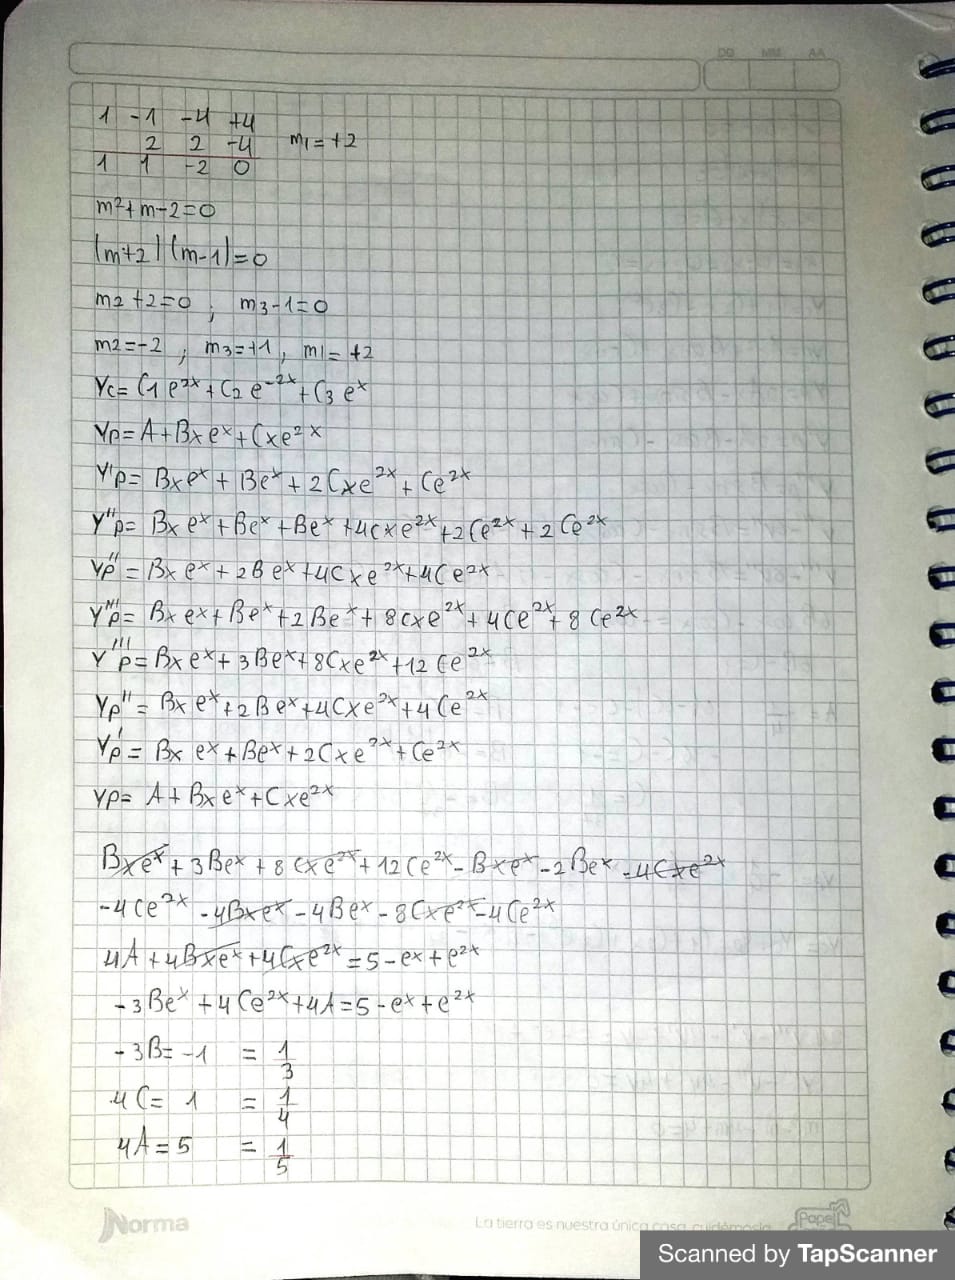 DD MM AA
1 -1 -4 +4
2 2 -4 m1 = +2
1 1 -2 0
m²+m-2=0
(m+2)(m-1)=0
m2+2=0 ; m3-1=0
m2=-2 ; m3=+1, m1= +2
Yc= C1 e^2x + C2 e^-2x + C3 e^x
Yp= A+Bxe^x+Cxe^2x
Y'p= Bxe^x + Be^x + 2Cxe^2x + Ce^2x
Y''p= Bxe^x+Be^x+Be^x+4Cxe^2x+2Ce^2x+2Ce^2x
Yp''= Bxe^x+2Be^x+4Cxe^2x+4Ce^2x
Y'''p= Bxe^x+Be^x+2Be^x+8Cxe^2x+4Ce^2x+8Ce^2x
Y'''p= Bxe^x+3Be^x+8Cxe^2x+12Ce^2x
Yp''= Bxe^x+2Be^x+4Cxe^2x+4Ce^2x
Yp'= Bxe^x+Be^x+2Cxe^2x+Ce^2x
Yp= A+Bxe^x+Cxe^2x
Bxe^x+3Be^x+8Cxe^2x+12Ce^2x-Bxe^x-2Be^x-4Cxe^2x
-4Ce^2x-4Bxe^x-4Be^x-8Cxe^2x-4Ce^2x
4A+4Bxe^x+4Cxe^2x=5-e^x+e^2x
-3Be^x+4Ce^2x+4A=5-e^x+e^2x
-3B=-1 = 1/3
4C= 1 = 1/4
4A=5 = 1/5
Norma
La tierra es nuestra única casa, cuidémosla
Papel
Scanned by TapScanner